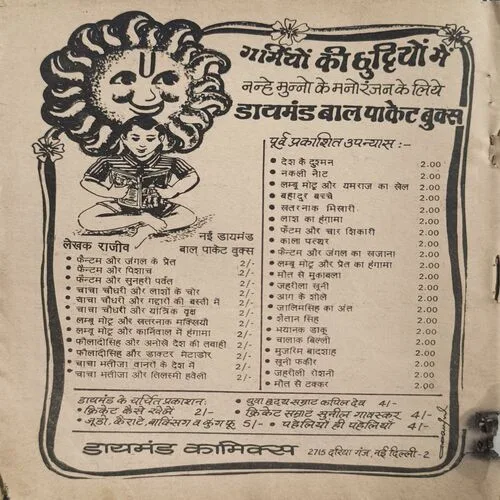 गर्मियों की छुट्टियों में
नन्हे मुन्नो के मनोरंजन के लिये
डायमंड बाल पाकेट बुक्स
लेखक राजीव
नई डायमंड
बाल पाकेट बुक्स
• फैन्टम और जंगल के प्रेत 2/-
• फैन्टम और पिशाच 2/-
• फैन्टम और सुनहरी पर्वत 2/-
• चाचा चौधरी और लाशों के चोर 2/-
• चाचा चौधरी और गद्दारों की बस्ती में 2/-
• चाचा चौधरी और यांत्रिक वृक्ष 2/-
• लम्बू मोटू और खतरनाक मक्खियाँ 2/-
• लम्बू मोटू और कार्निवाल में हंगामा 2/-
• फौलादीसिंह और अनोखे देश की तबाही 2/-
• फौलादीसिंह और डाक्टर मेटाडोर 2/-
• चाचा भतीजा वानरों के देश में 2/-
• चाचा भतीजा और तिलस्मी हवेली 2/-
पूर्व प्रकाशित उपन्यास :-
• देश के दुश्मन 2.00
• नकली नोट 2.00
• लम्बू मोटू और यमराज का खेल 2.00
• बहादुर बच्चे 2.00
• खतरनाक भिखारी 2.00
• लाश का हंगामा 2.00
• फैंटम और चार शिकारी 2.00
• काला पत्थर 2.00
• फैन्टम और जंगल का खजाना 2.00
• लम्बू मोटू और प्रेत का हंगामा 2.00
• मौत से मुकाबला 2.00
• जहरीला खूनी 2.00
• आग के शोले 2.00
• जालिमसिंह का अंत 2.00
• शैतान सिंह 2.00
• भयानक डाकू 2.00
• चालाक बिल्ली 2.00
• मुजरिम बादशाह 2.00
• खूनी फकीर 2.00
• जहरीली रोशनी 2.00
• मौत से टक्कर 2.00
डायमंड के चर्चित प्रकाशन: • युवा हृदय सम्राट कपिल देव 4/-
• क्रिकेट कैसे खेलें 2/- • क्रिकेट सम्राट सुनील गावस्कर 4/-
• जूडो, कैराटे, बाक्सिंग व कुंगफू 5/- • पहेलियाँ ही पहेलियाँ 4/-
डायमंड कामिक्स 2715 दरिया गंज, नई दिल्ली-2